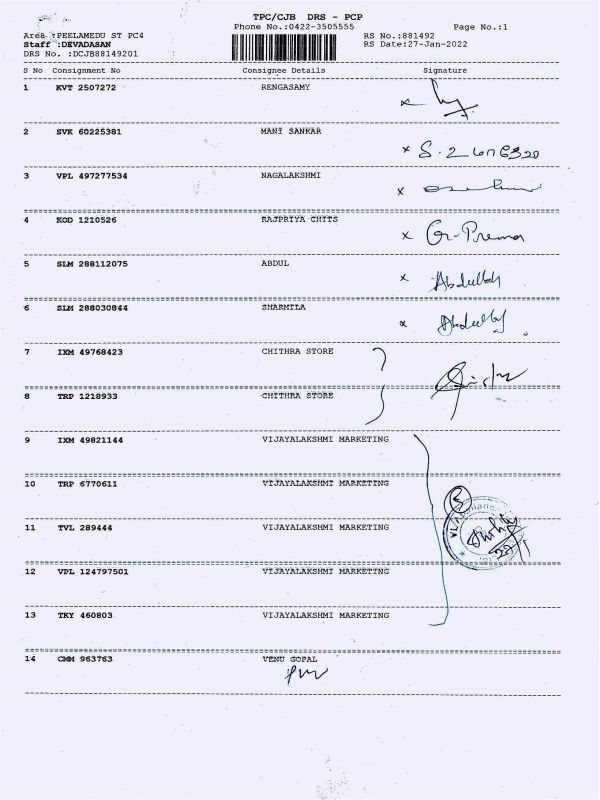 TPC/CJB DRS - PCP
Phone No.:0422-3505555 Page No.:1
Area :PEELAMEDU ST PC4 RS No.:881492
Staff :DEVADASAN RS Date:27-Jan-2022
DRS No. :DCJB88149201
S No Consignment No Consignee Details Signature
1 KVT 2507272 RENGASAMY
x
2 SVK 60225381 MANI SANKAR
x
3 VPL 497277534 NAGALAKSHMI
x
4 KOD 1210526 RAJPRIYA CHITS
x G-Prema
5 SLM 288112075 ABDUL
x Abdullah
6 SLM 288030844 SHARMILA
x Abdullah
7 IXM 49768423 CHITHRA STORE
8 TRP 1218933 CHITHRA STORE
9 IXM 49821144 VIJAYALAKSHMI MARKETING
10 TRP 6770611 VIJAYALAKSHMI MARKETING
5
11 TVL 289444 VIJAYALAKSHMI MARKETING
12 VPL 124797501 VIJAYALAKSHMI MARKETING
13 TKY 460803 VIJAYALAKSHMI MARKETING
14 CMM 963763 VENU GOPAL